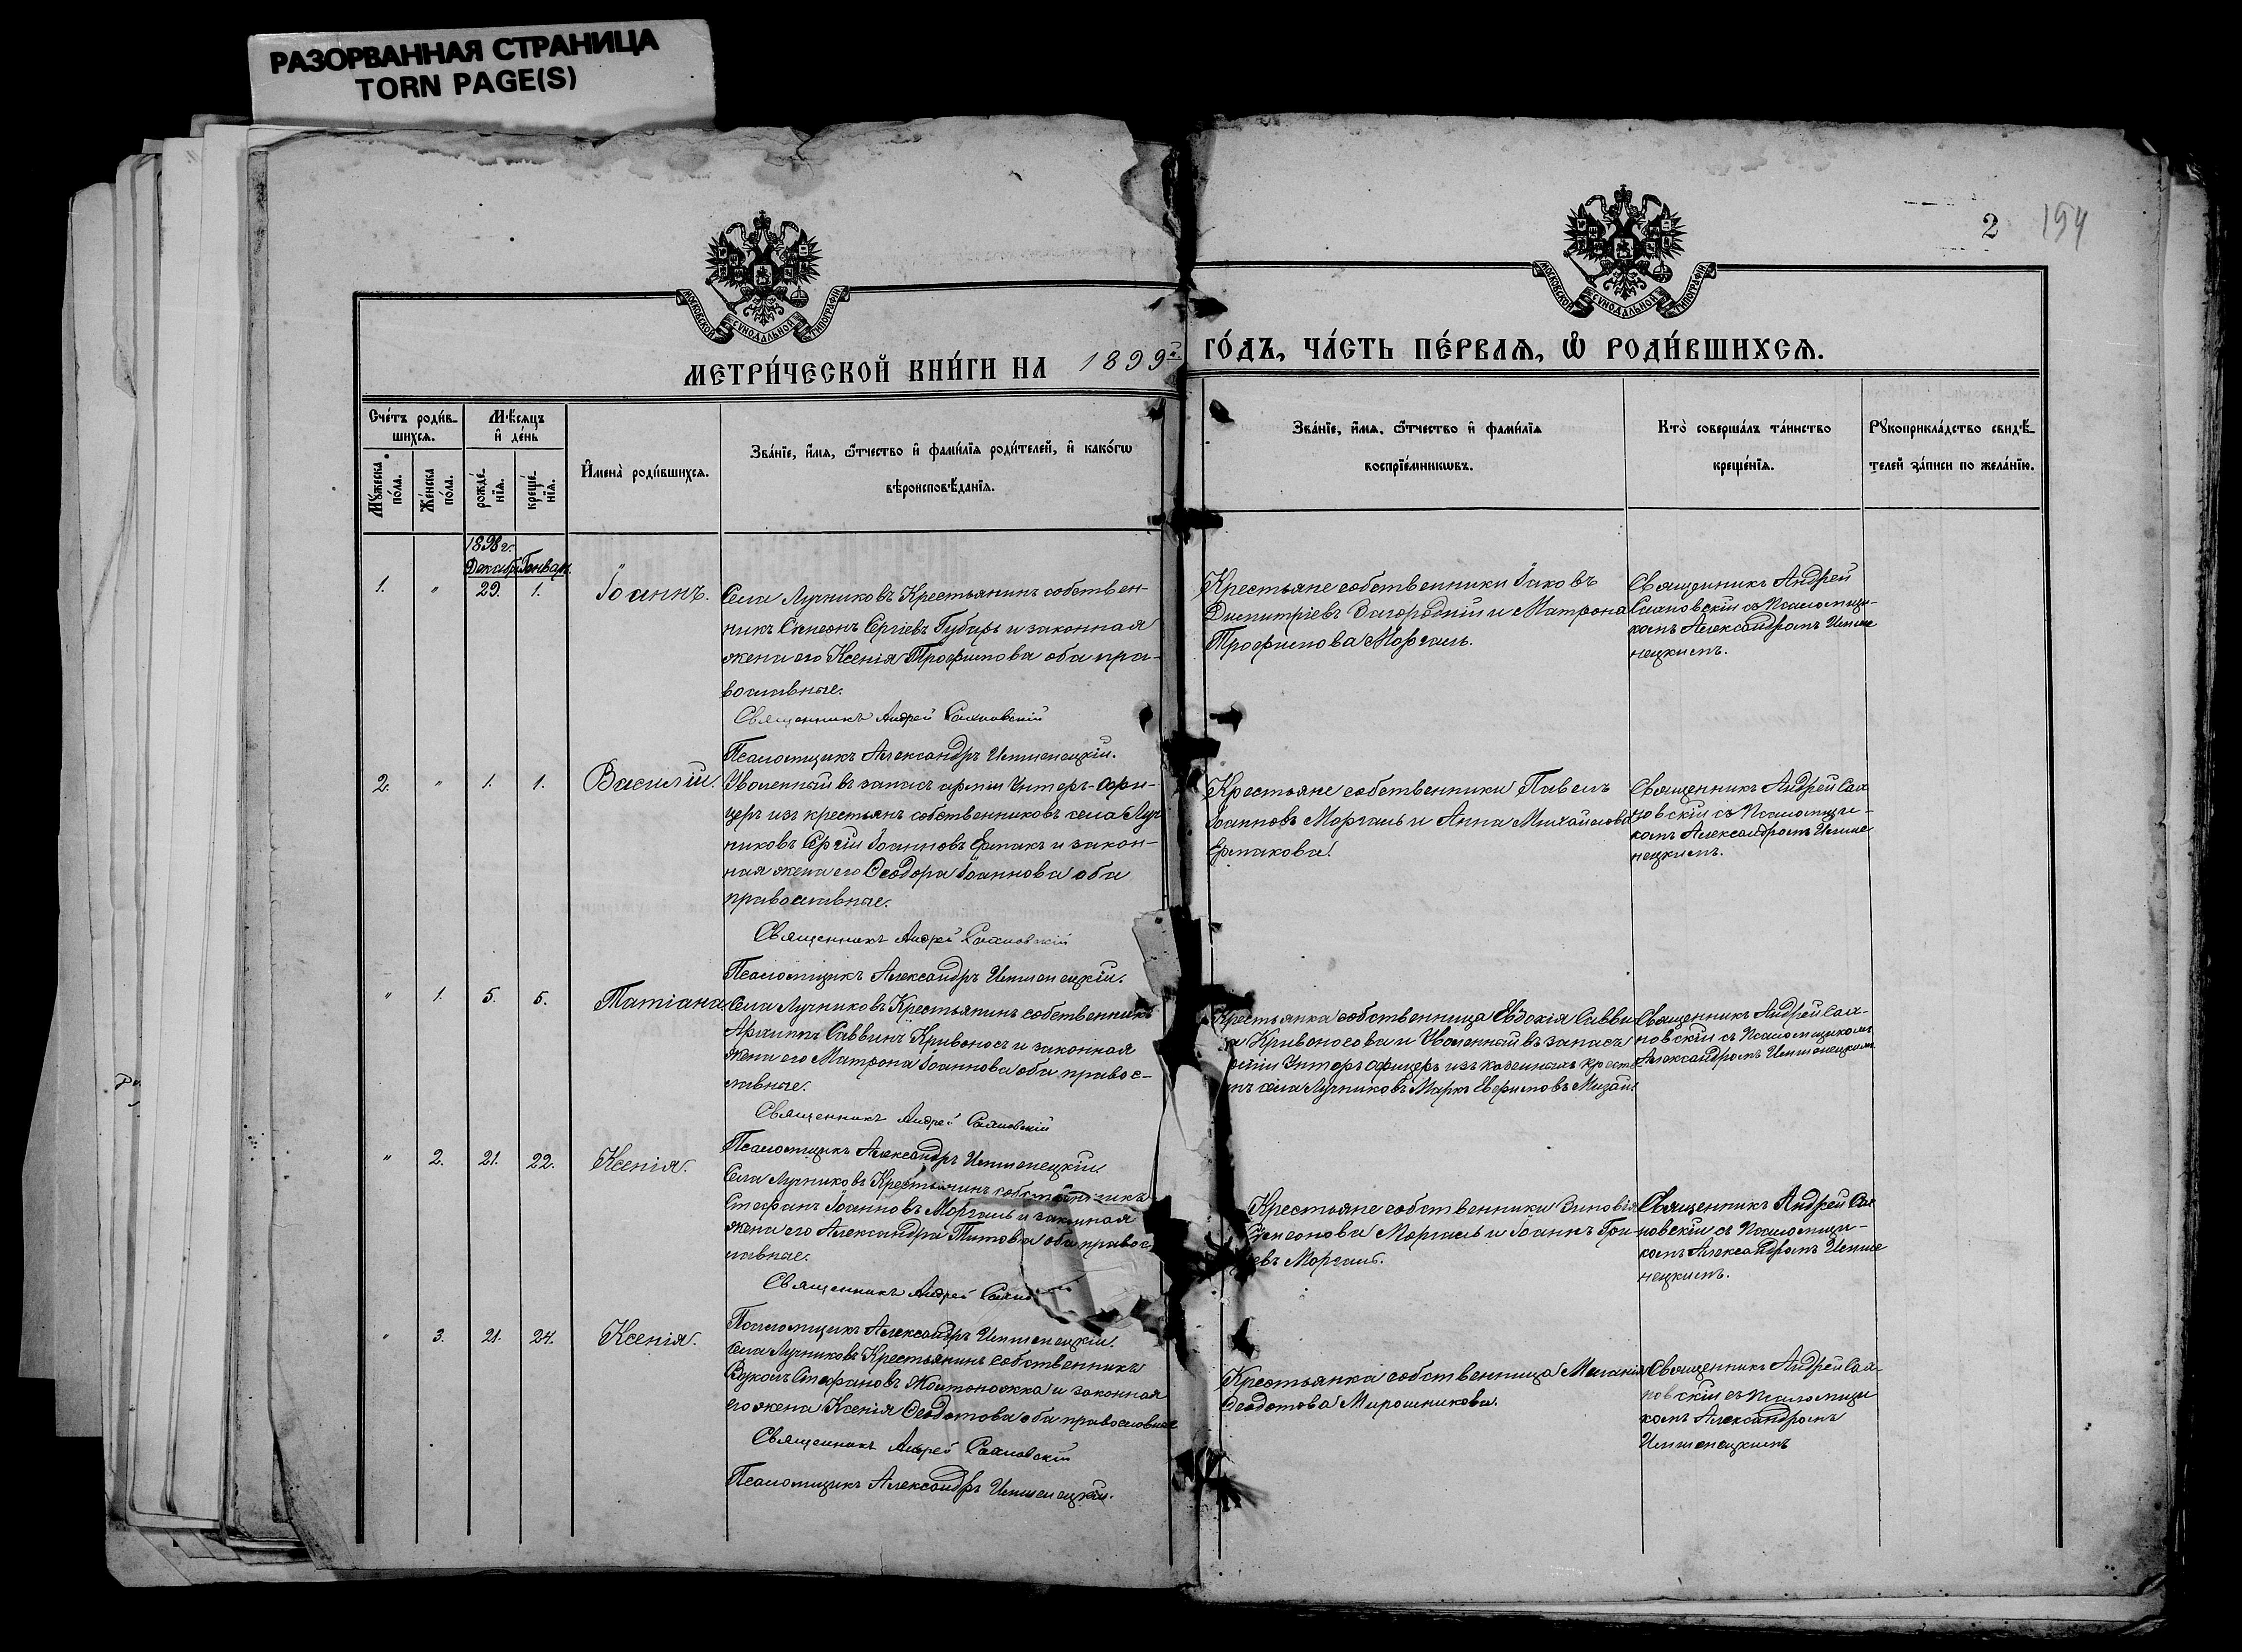 РАЗОРВАННАЯ СТРАНИЦА
TORN PAGE(S)
2
194
МОСКОВСКОЙ СѴНОДАЛЬНОЙ ТИПОГРАФІИ
МОСКОВСКОЙ СѴНОДАЛЬНОЙ ТИПОГРАФІИ
МЕТРИ́ЧЕСКОЙ КНИ́ГИ НА 1899й ГО́ДЪ, ЧА́СТЬ ПЕ́РВАЯ, Ѽ РОДИ́ВШИХСЯ.
Сче́тъ роди́в-
шихся.
Мꙋжеска по́ла.
Же́нска по́ла.
Мѣ́сяцъ и҆ де́нь
рожде́нїя.
креще́нїя.
И҆мена̀ роди́вшихся.
Зва́нїе, и҆́мя, ѻ҆́тчество и҆ фами́лїя роди́телей, и҆ како́гѡ
вѣроисповѣ́данїя.
Зва́нїе, и҆́мя, ѻ҆́тчество и҆ фами́лїя
воспрїе́мникѡвъ.
Кто̀ соверша́лъ та́инство
креще́нїя.
Рꙋкоприкла́дство свидѣ́-
телей за́писи по жела́нїю.
1898 г.
Декабр. Январ.
1. " 29. 1. Іоаннъ.
Села Лучниковъ Крестьянинъ собствен-
никъ Симеонъ Сергіевъ Губарь и законная
жена его Ксенія Трофимова оба пра-
вославные.
Священникъ Андрей
Псаломщикъ Александръ
Крестьяне собственники Іаковъ
Димитріевъ Загородній и Матрона
Трофимова Моргаль.
Священникъ Андрей
съ Псаломщи-
комъ Александромъ
нецкимъ.
2. " 1. 1. Василій.
Уволенный въ запасъ арміи Унтеръ-офи-
церъ изъ крестьянъ собственниковъ села Луч
никовъ Сергій Іоанновъ Ермакъ и закон-
ная жена его Ѳеодора Іоаннова оба
православные.
Священникъ Андрей
Псаломщикъ Александръ
Крестьяне собственники Павелъ
Іоанновъ Моргаль и Анна Михайлова
Ермакова.
Священникъ Андрей
новскій съ Псаломщи-
комъ Александромъ
нецкимъ.
" 1. 5. 5. Татіана.
Села Лучниковъ Крестьянинъ собственникъ
Архиппъ Саввинъ Кривоносъ и законная
жена его Матрона Іоаннова оба правос-
лавные.
Священникъ Андрей
Псаломщикъ Александръ
Крестьянка собственница Евдокія Савви
а Кривоносова и Уволенный въ запасъ
Унтеръ офицеръ изъ казенныхъ крестья
нъ села Лучниковъ Маркъ Евфимовъ
Священникъ Андрей
новскій съ Псаломщикомъ
Александромъ
" 2. 21. 22. Ксенія.
Села Лучниковъ Крестьянинъ собственникъ
Стефанъ Іоанновъ Моргаль и законная
жена его Александра Титова оба правос
лавные.
Священникъ Андрей
Псаломщикъ Александръ
Крестьяне собственники Зиновія
Моргаль и Іоаннъ Гри-
евъ Моргаль.
Священникъ Андрей
новскій съ Псаломщи-
комъ Александромъ
нецкимъ.
" 3. 21. 24. Ксенія.
Села Лучниковъ Крестьянинъ собственникъ
Вуколъ Стефановъ Жолтоножка и законная
его жена Ксенія Ѳеодотова оба православные
Священникъ Андрей
Псаломщикъ Александръ
Крестьянка собственница Меланія
Ѳеодотова Мирошникова.
Священникъ Андрей
новскій съ Псаломщи
комъ Александромъ